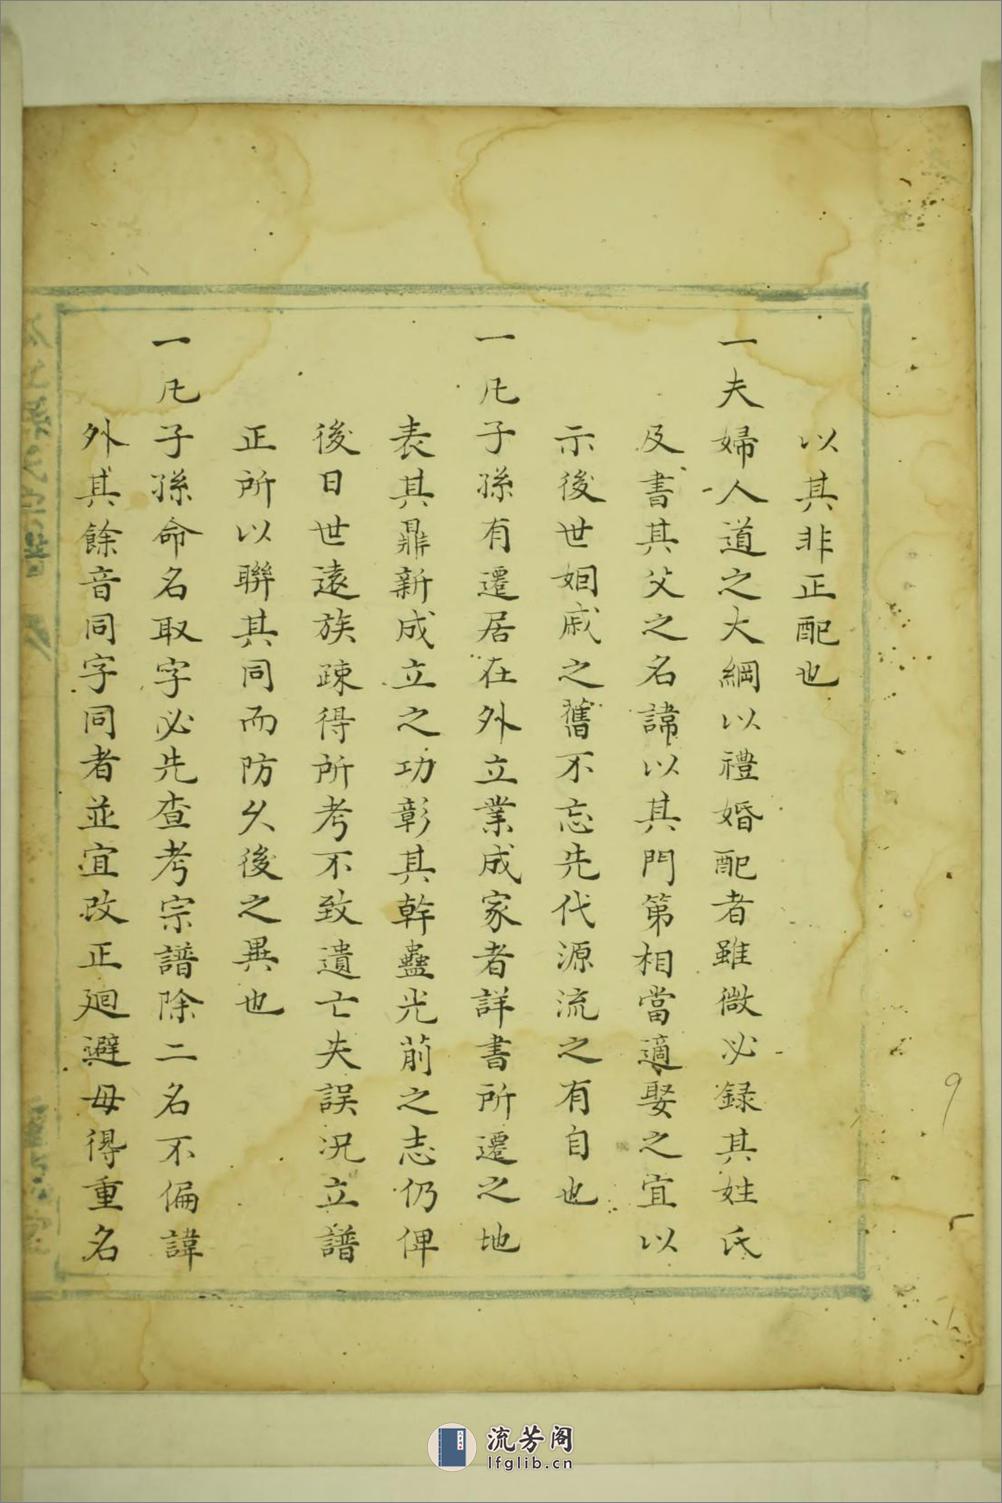 以其非正配也
一夫婦人道之大綱以禮婚配者雖微必録其姓氏
及書其父之名諱以其門第相當適娶之宜以
示後世姻戚之舊不忘先代源流之有自也
一凡子孫有遷居在外立業成家者詳書所遷之地
表其鼎新成立之功彰其幹蠱光前之志仍俾
後日世遠族疎得所考不致遺亡失誤况立譜
正所以聯其同而防久後之異也
一凡子孫命名取字必先查考宗譜除二名不偏諱
外其餘音同字同者並宜改正廻避毋得重名
孫氏宗譜
9
流芳阁
lfglib.cn